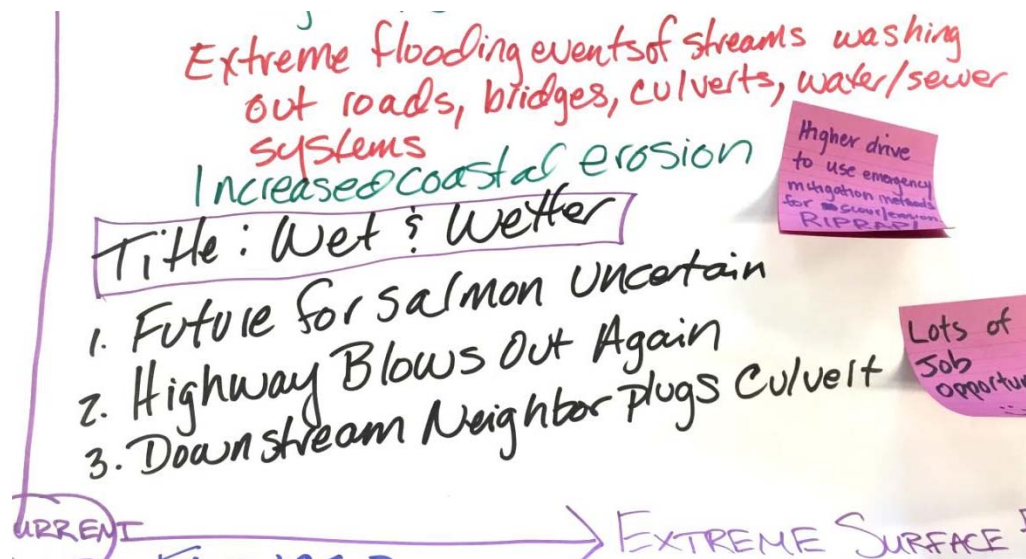 Extreme flooding events of streams washing
out roads, bridges, culverts, water/sewer
systems
Increased coastal erosion
Higher drive
to use emergency
mitigation methods
for scour/erosion
RIPRAP!
Title: Wet & Wetter
1. Future for Salmon Uncertain
2. Highway Blows Out Again
3. Downstream Neighbor Plugs Culvert
Lots of
Job
EXTREME SURFACE